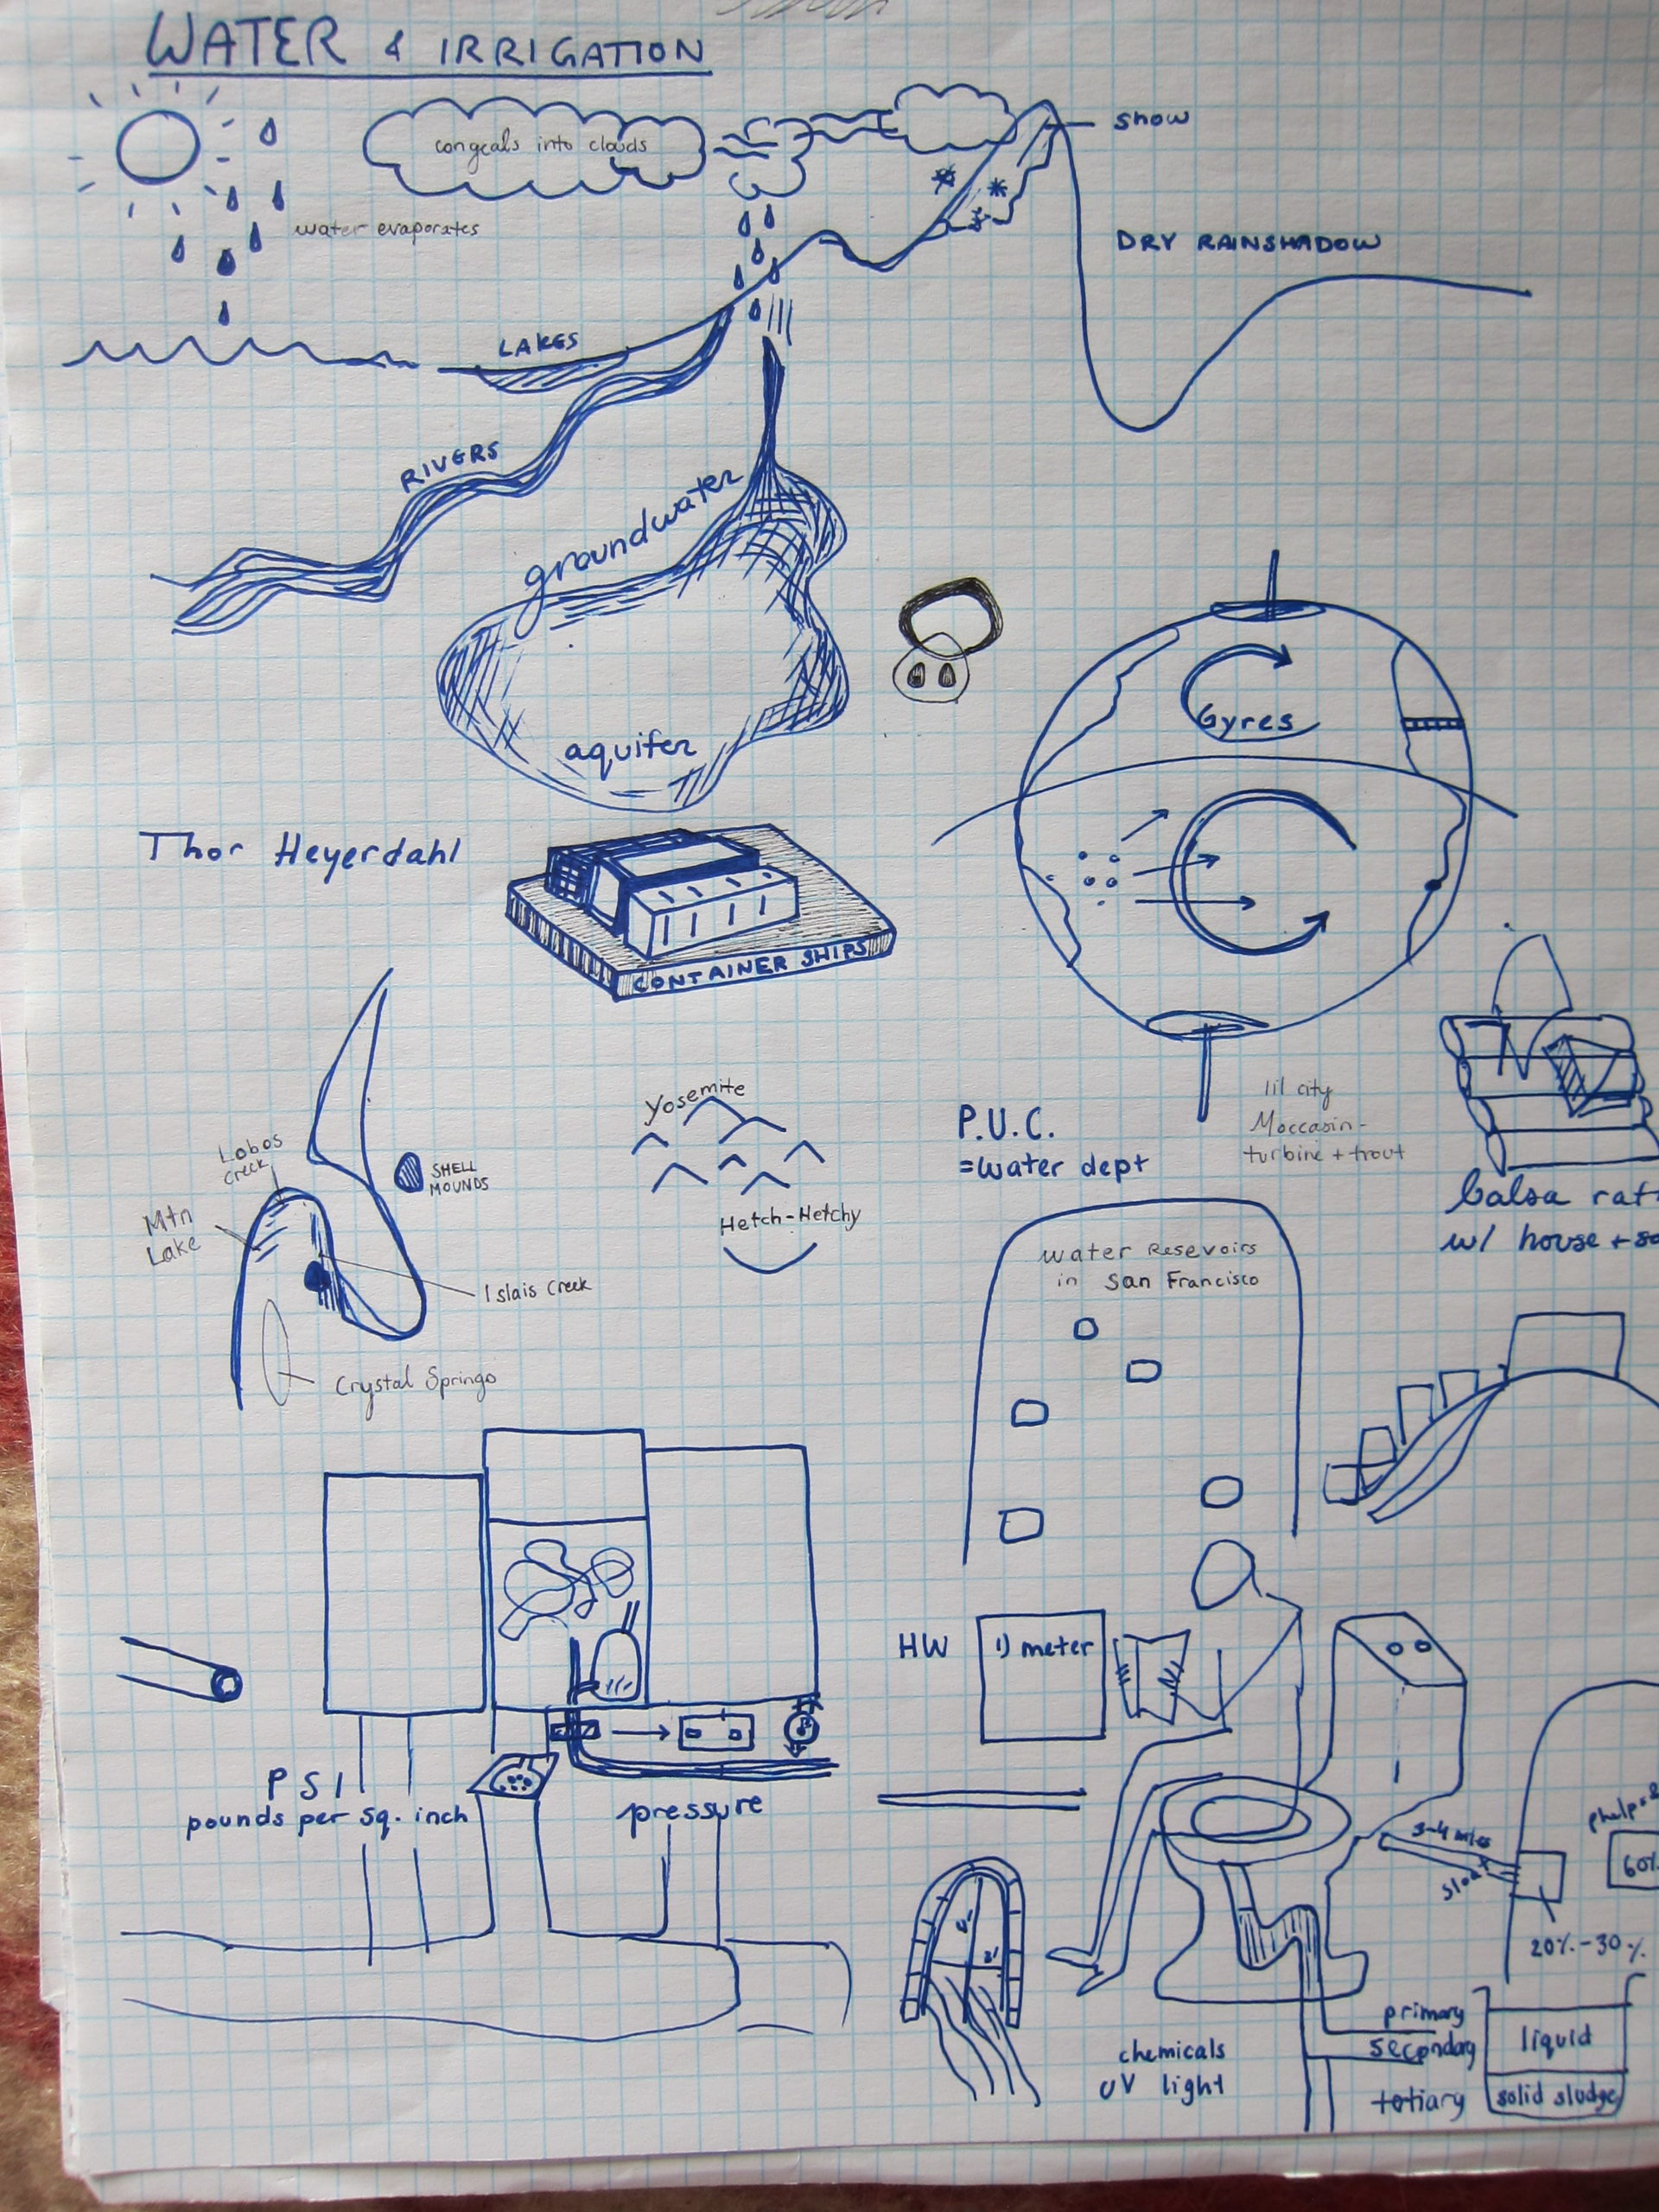 WATER & IRRIGATION
congeals into clouds
snow
water evaporates
DRY RAINSHADOW
LAKES
RIVERS
groundwater
aquifer
Gyres
Thor Heyerdahl
CONTAINER SHIPS
Yosemite
Hetch-Hetchy
P.U.C.
=water dept
lil city
Moccasin-
turbine + trout
balsa raft
w/ house +
Lobos
Creek
SHELL
MOUNDS
Mtn
Lake
Islais Creek
Crystal Springs
water Resevoirs
in San Francisco
HW
1) meter
PSI
pounds per sq. inch
pressure
3-4 miles
60%
20%-30%
chemicals
UV light
primary
secondary
tertiary
liquid
solid sludge